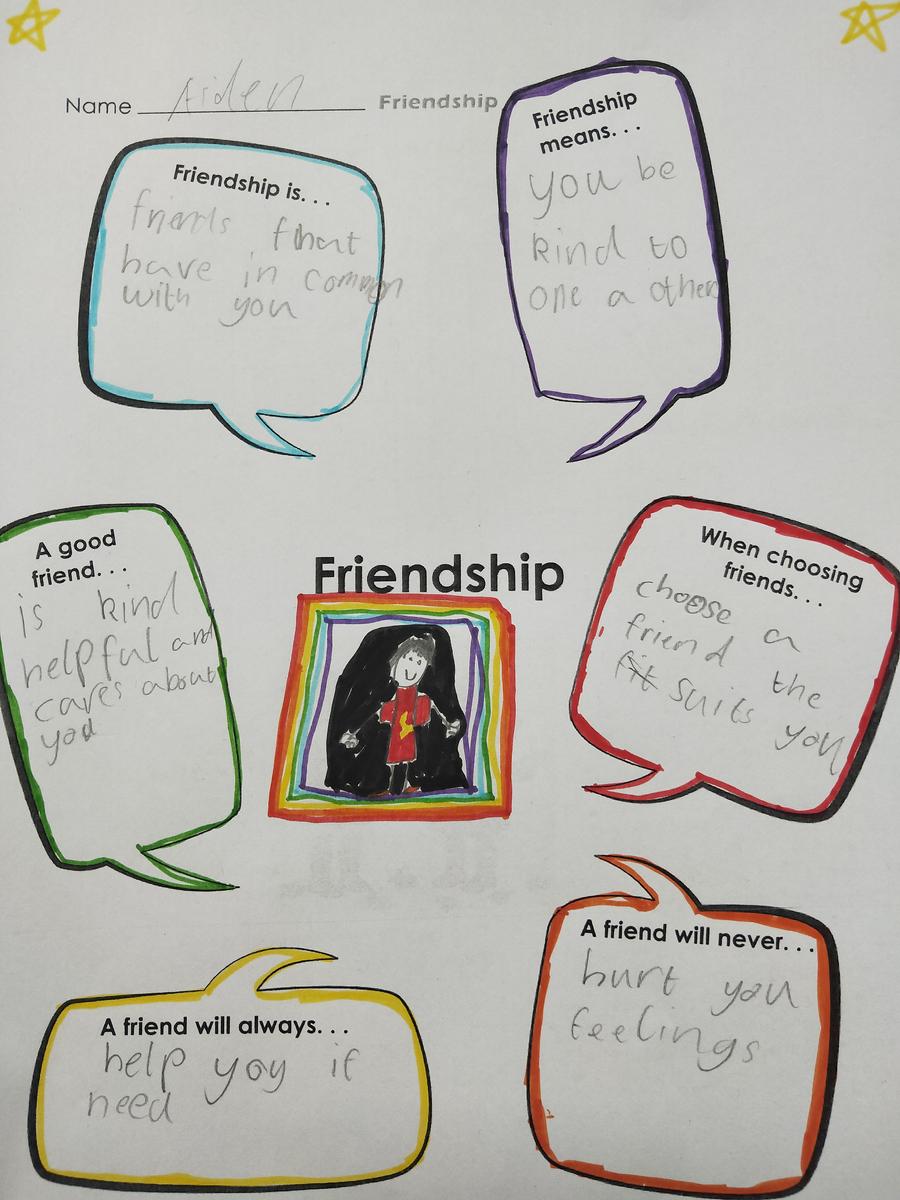 Name Aiden Friendship
Friendship is...
friends that
have in common
with you
Friendship
means...
you be
kind to
one a other
A good
friend...
is kind
helpful and
cares about
you
Friendship
When choosing
friends...
choose a
friend the
fit suits you
A friend will always...
help you if
need
A friend will never...
hurt you
feelings